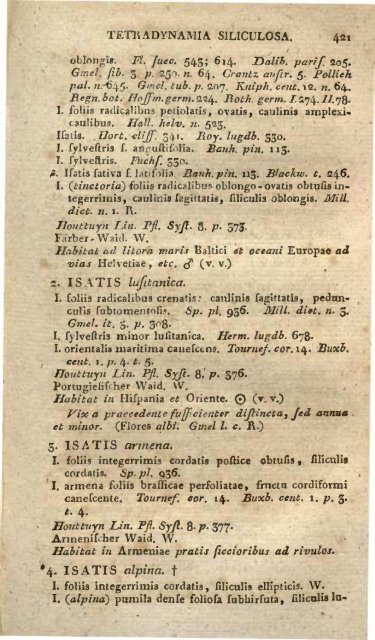 TETRADYNAMIA SILICULOSA. 421
oblongis. Fl. ſuec. 543; 614. Dalib. pariſ. 205.
Gmel. ſib. 3. p. 250. n. 64. Crantz auſtr. 5. Pollich
pal. n. 645. Gmel. tub. p. 207. Kniph. cent. 12. n. 64.
Regn. bot. Hoffm. germ. 224. Roth. germ. I. 274. II. 78.
I. foliis radicalibus petiolatis, ovatis, caulinis amplexi-
caulibus. Hall. helv. n. 523.
Iſatis. Hort. cliff. 341. Roy. lugdb. 330.
I. ſylveſtris ſ. anguſtifolia. Bauh. pin. 113.
I. ſylveſtris. Fuchſ. 330.
Iſatis ſativa ſ. latifolia. Bauh. pin. 113. Blackw. t. 246.
I. (tinctoria) foliis radicalibus oblongo-ovatis obtuſis in-
tegerrimis, caulinis ſagittatis, ſiliculis oblongis. Mill.
dict. n. 1. R.
Houttuyn Lin. Pfl. Syſt. 8. p. 373.
Färber-Waid. W.
Habitat ad litora maris Baltici et oceani Europae ad
vias Helvetiae, etc. ♂ (v. v.)
2. ISATIS luſitanica.
I. foliis radicalibus crenatis: caulinis ſagittatis, pedun-
culis ſubtomentoſis. Sp. pl. 936. Mill. dict. n. 3.
Gmel. it. 3. p. 308.
I. ſylveſtris minor luſitanica. Herm. lugdb. 678.
I. orientalis maritima caneſcens. Tournef. cor. 14. Buxb.
cent. 1. p. 4. t. 5.
Houttuyn Lin. Pfl. Syſt. 8. p. 376.
Portugieſiſcher Waid. W.
Habitat in Hiſpania et Oriente. ☉ (v. v.)
Vix a praecedente ſufficienter diſtincta, ſed annua
et minor. (Flores albi. Gmel l. c. R.)
3. ISATIS armena.
I. foliis integerrimis cordatis poſtice obtuſis, ſiliculis
cordatis. Sp. pl. 936.
I. armena foliis braſſicae perfoliatae, fructu cordiformi
caneſcente. Tournef. cor. 14. Buxb. cent. 1. p. 3.
t. 4.
Houttuyn Lin. Pfl. Syſt. 8. p. 377.
Armeniſcher Waid. W.
Habitat in Armeniae pratis ſiccioribus ad rivulos.
*4. ISATIS alpina. †
I. foliis integerrimis cordatis, ſiliculis ellipticis. W.
I. (alpina) pumila denſe folioſa ſubhirſuta, ſiliculis la-